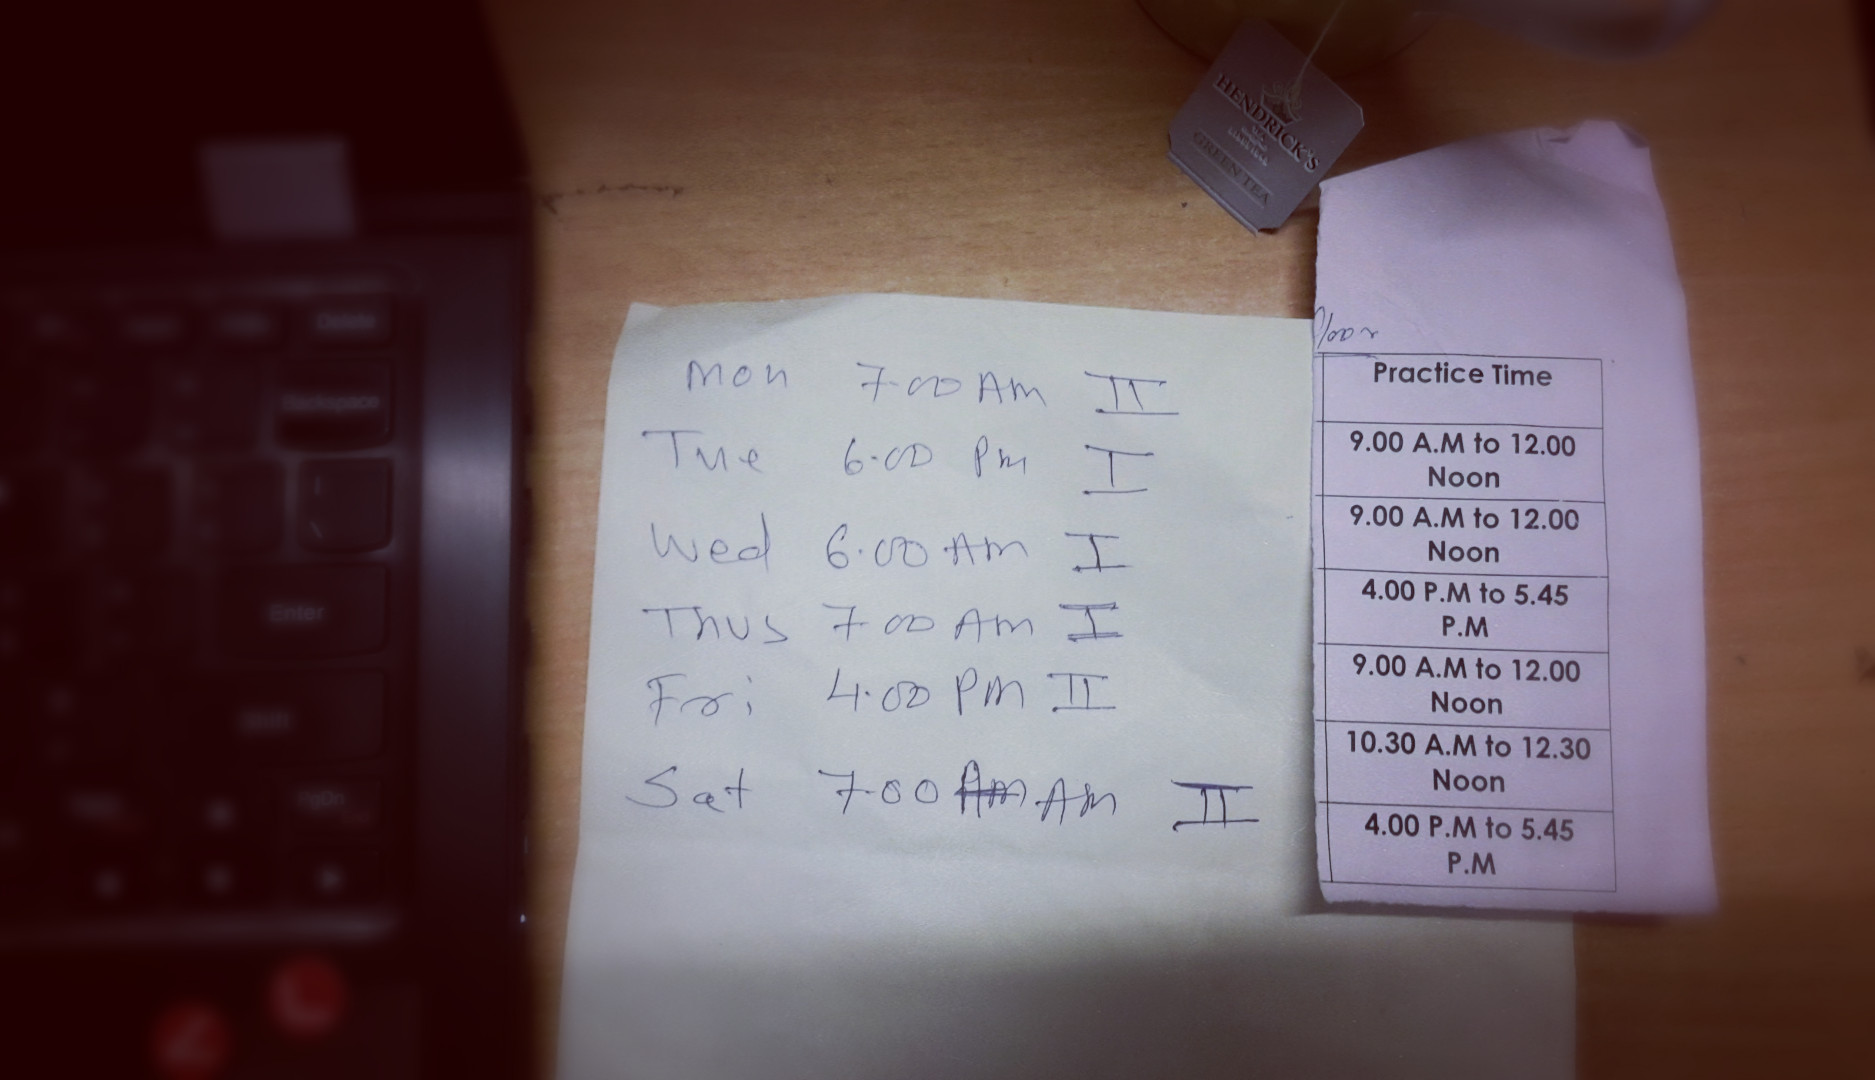 HENDRICK'S
GREEN TEA
Mon 7.00 Am II
Tue 6.00 Pm I
Wed 6.00 Am I
Thus 7.00 Am I
Fri 4.00 PM II
Sat 7.00 Am Am II
Practice Time
9.00 A.M to 12.00
Noon
9.00 A.M to 12.00
Noon
4.00 P.M to 5.45
P.M
9.00 A.M to 12.00
Noon
10.30 A.M to 12.30
Noon
4.00 P.M to 5.45
P.M
Delete
Backspace
Enter
Shift
PgDn